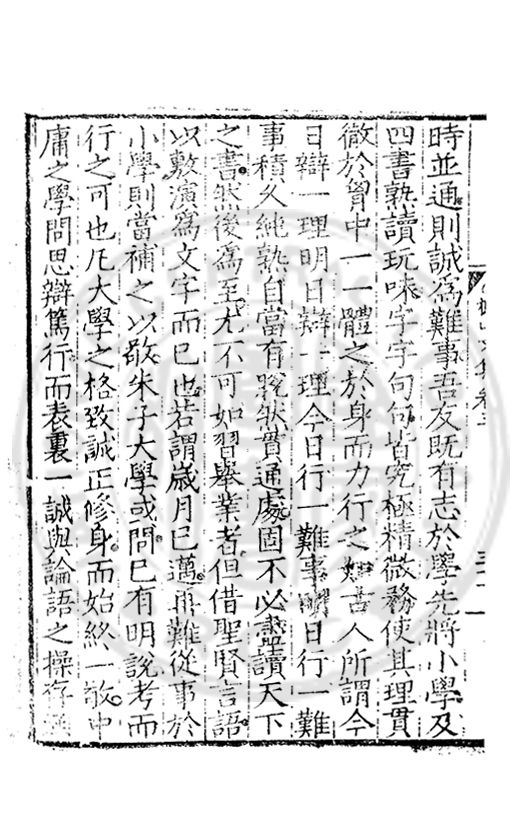 時並通則誠為難事吾友既有志於學先將小學及
四書熟讀玩味字字句句皆究極精微務使其理貫
徹於胷中一一體之於身而力行之如古人所謂今
日辯一理明日辯一理今日行一難事明日行一難
事積久純熟自當有脫然貫通處固不必盡讀天下
之書然後爲至尤不可如習舉業者但借聖賢言語
以敷演寫文字而已也若謂歲月已邁再難從事於
小學則當補之以敬朱子大學或問已有明說考而
行之可也凡大學之格致誠正修身而始終一敬中
庸之學問思辯篤行而表裏一誠與論語之操存涵